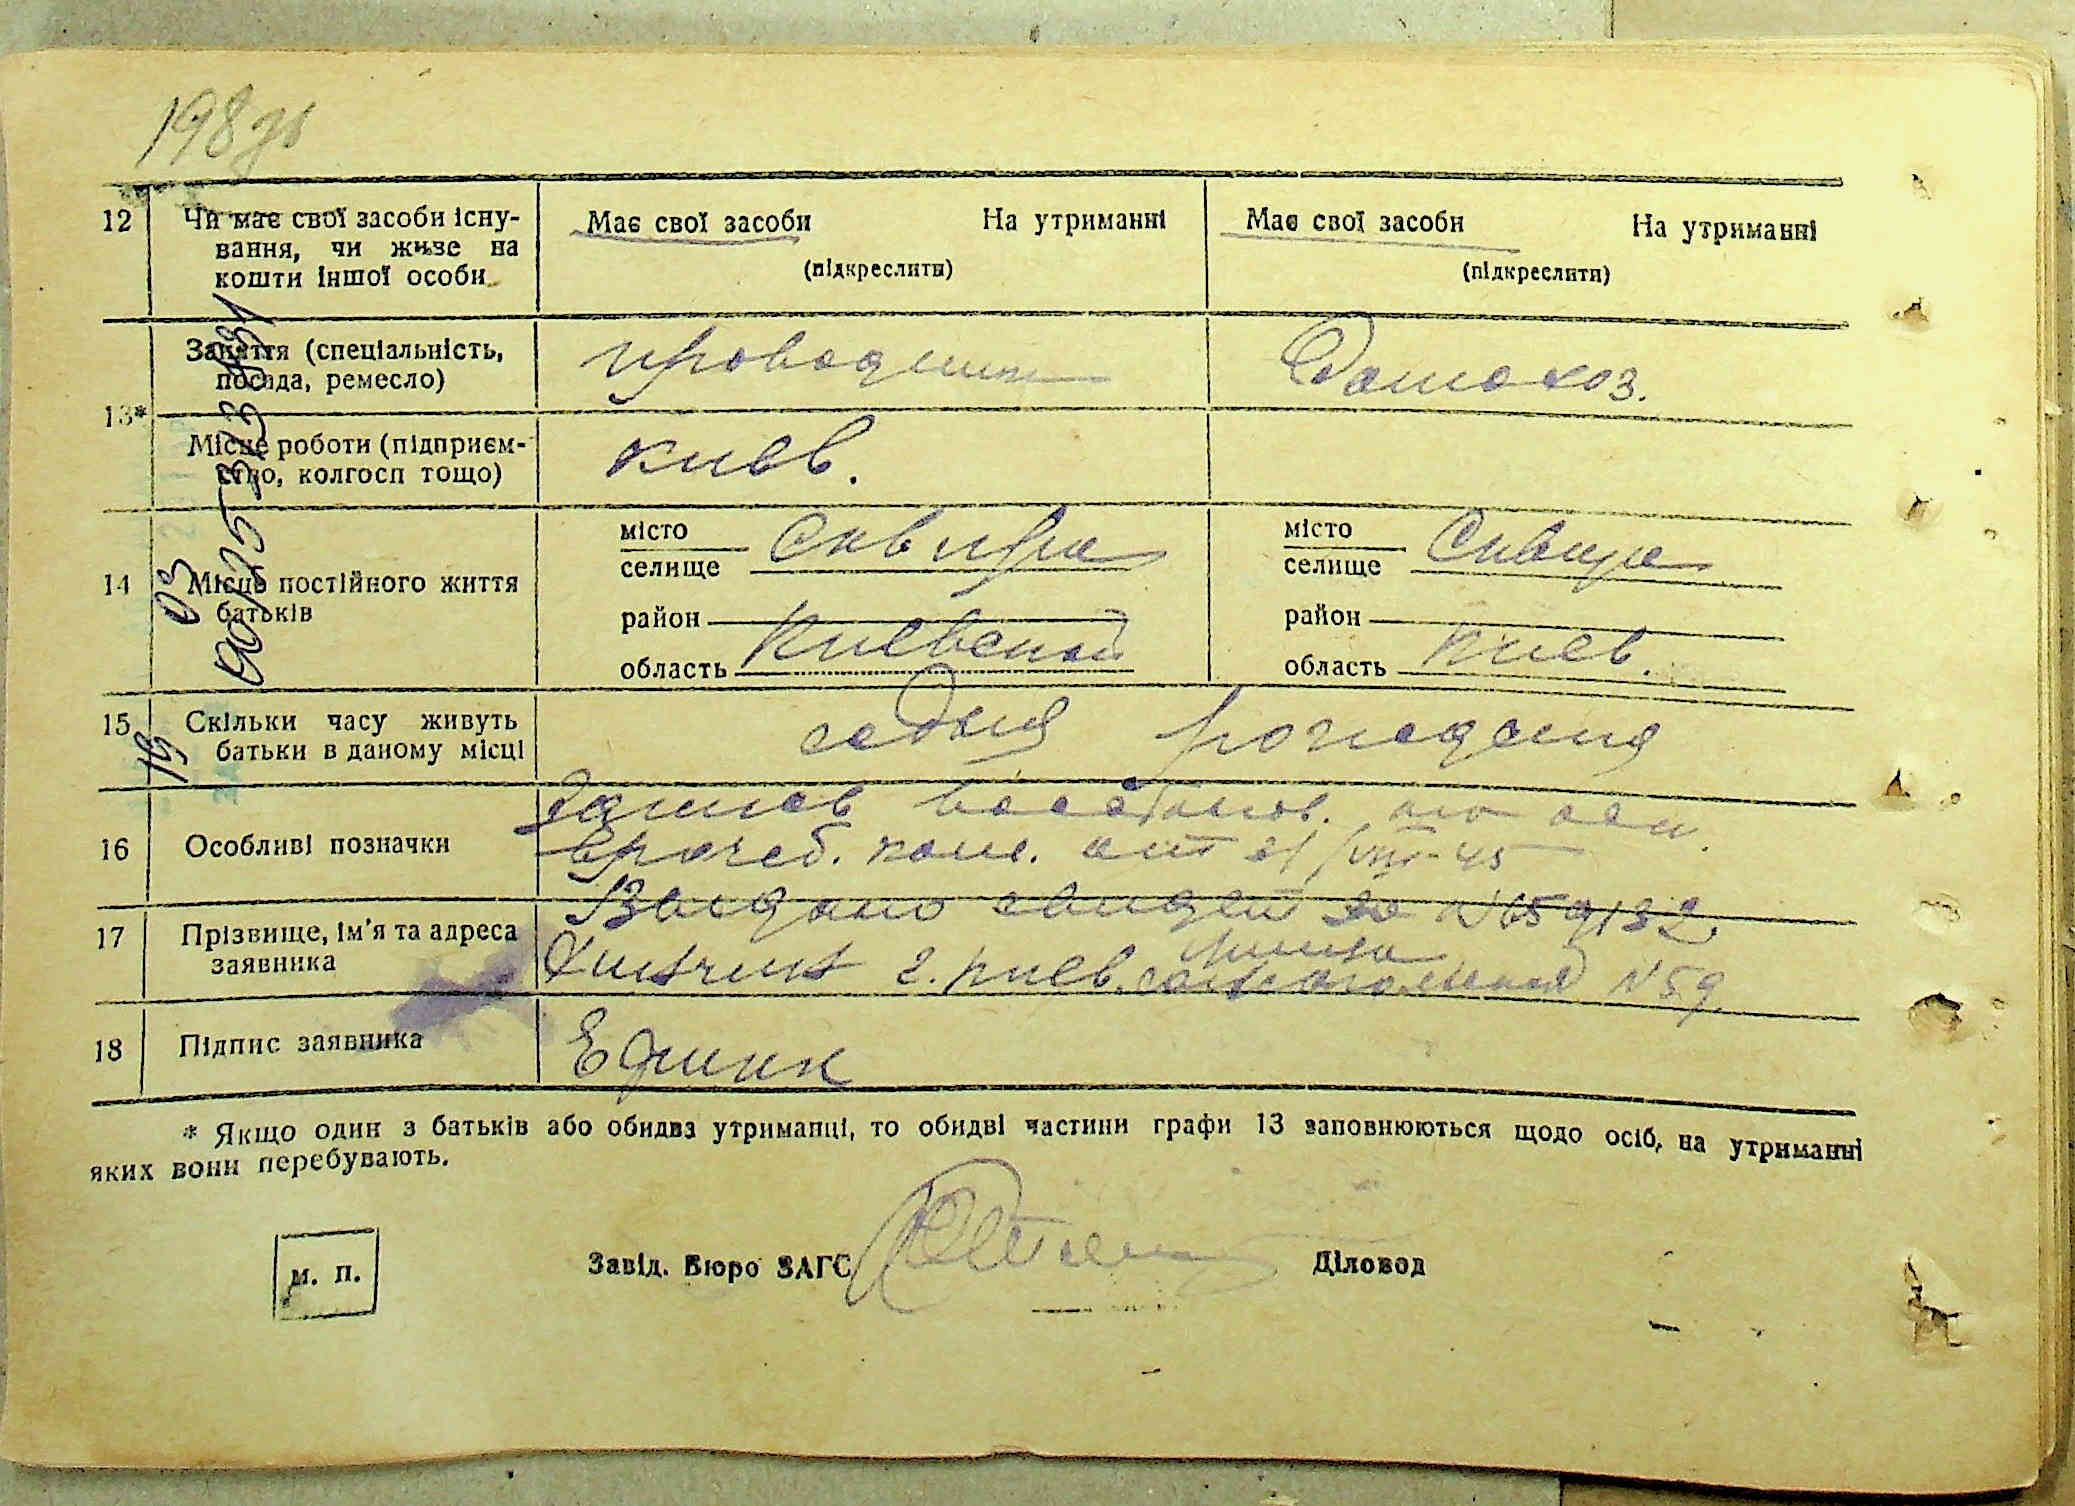 198 зв
12 Чи має свої засоби існу-
вання, чи живе на
кошти іншої особи
Має свої засоби На утриманні
(підкреслити)
Має свої засоби На утриманні
(підкреслити)
13*
Заняття (спеціальність,
посада, ремесло)
проводник
Домохоз.
Місце роботи (підприєм-
ство, колгосп тощо)
Киев.
14 Місце постійного життя
батьків
місто
селище Сквира
район
область Киевской
місто
селище Сквира
район
область Киев.
15 Скільки часу живуть
батьки в даному місці
со дня рождения
16 Особливі позначки
Запись восстанов. на осн.
врачеб. ком. от 21/VIII-45
Выдано свидет за №
17 Прізвище, ім'я та адреса
заявника
г. Киев. №59
18 Підпис заявника
* Якщо один з батьків або обидва утриманці, то обидві частини графи 13 заповнюються щодо осіб, на утриманні
яких вони перебувають.
м. п.
Завід. Бюро ЗАГС
Діловод